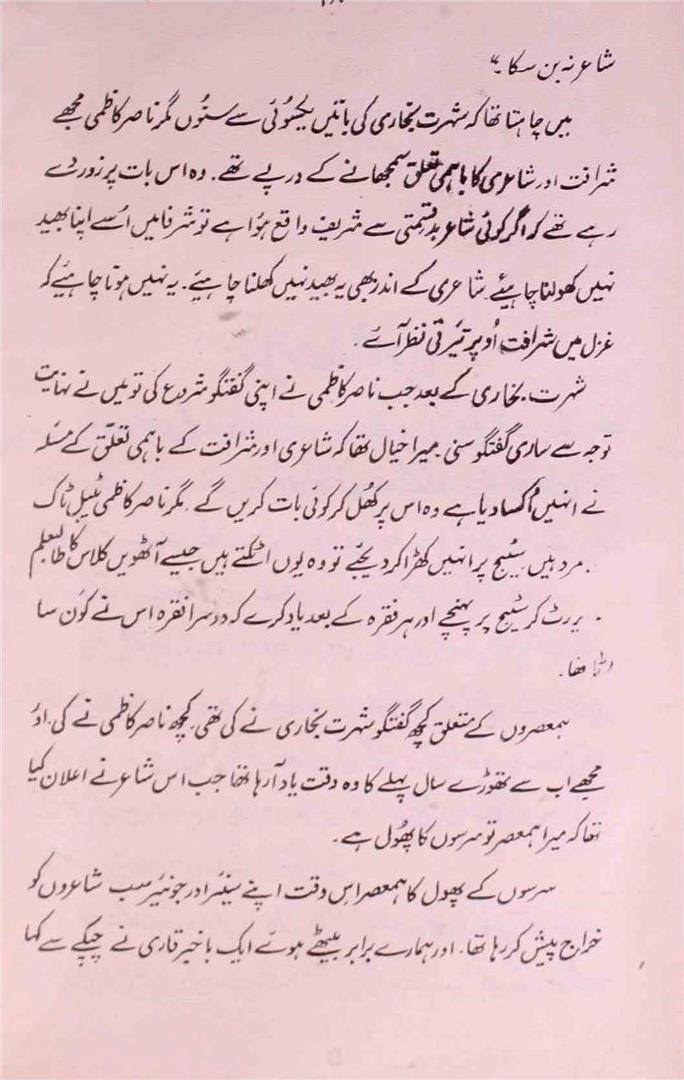 شاعر نہ بن سکا۔"
میں چاہتا تھا کہ شہرت بخاری کی باتیں یکسوئی سے سنوں مگر ناصر کاظمی مجھے
شرافت اور شاعری کا باہمی تعلق سمجھانے کے درپے تھے۔ وہ اس بات پر زور دے
رہے تھے کہ اگر کوئی شاعر بدقسمتی سے شریف واقع ہوا ہے تو شرفا میں اُسے اپنا بھید
نہیں کھولنا چاہیئے۔ شاعری کے اندر بھی یہ بھید نہیں کھلنا چاہیئے۔ یہ نہیں ہونا چاہیئے کہ
غزل میں شرافت اُوپر تیرتی نظر آئے۔
شہرت بخاری کے بعد جب ناصر کاظمی نے اپنی گفتگو شروع کی تو میں نے نہایت
توجہ سے ساری گفتگو سنی۔ میرا خیال تھا کہ شاعری اور شرافت کے باہمی تعلّق کے مسئلہ
نے انہیں اُکسا دیا ہے وہ اس پر کھُل کر کوئی بات کریں گے۔ مگر ناصر کاظمی ٹیبل ٹاک
مرد ہیں۔ سٹیج پر انہیں کھڑا کر دیجئے تو وہ یوں اٹکتے ہیں جیسے آٹھویں کلاس کا طالبعلم
رٹ کر سٹیج پر پہنچے اور ہر فقرہ کے بعد یاد کرے کہ دوسرا فقرہ اس نے کون سا
رٹا تھا۔
ہمعصروں کے متعلق کچھ گفتگو شہرت بخاری نے کی تھی۔ کچھ ناصر کاظمی نے کی۔ اور
مجھے اب سے تھوڑے سال پہلے کا وہ وقت یاد آ رہا تھا جب اس شاعر نے اعلان کیا
تھا کہ میرا ہمعصر تو سرسوں کا پھُول ہے۔
سرسوں کے پھول کا ہمعصر اس وقت اپنے سینئر اور جونیئر سب شاعروں کو
خراج پیش کر رہا تھا۔ اور ہمارے برابر بیٹھے ہوئے ایک باخبر قاری نے چپکے سے کہا